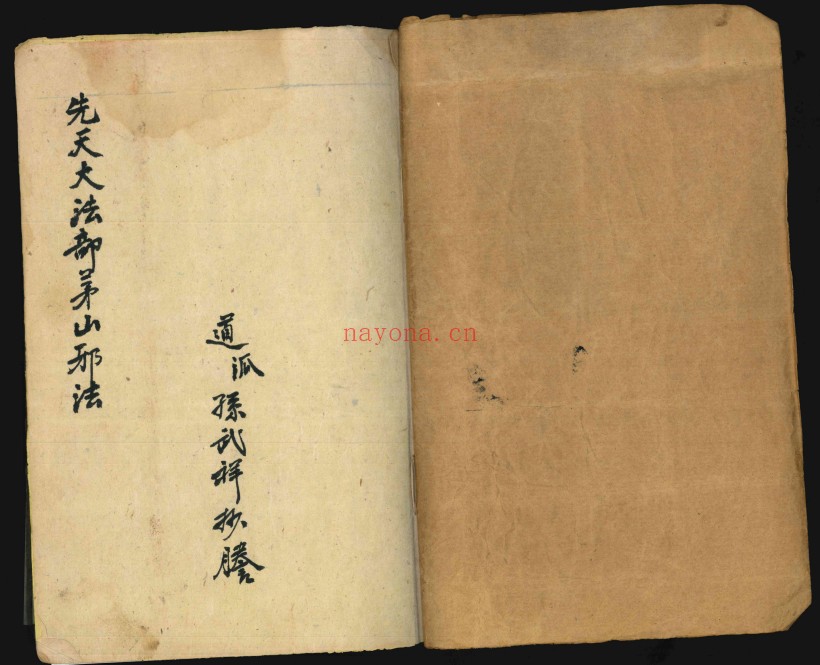 先天大法部茅山邪法
道派孫武祥抄謄
nayona.cn